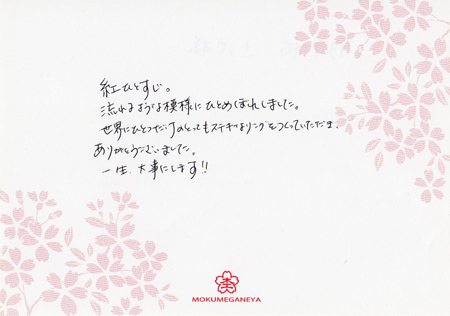 紅ひとすじ。
流れるような模様にひとめぼれしました。
世界にひとつだけのとってもステキなリングをつくっていただき、
ありがとうございました。
一生、大事にします!!
MOKUMEGANEYA